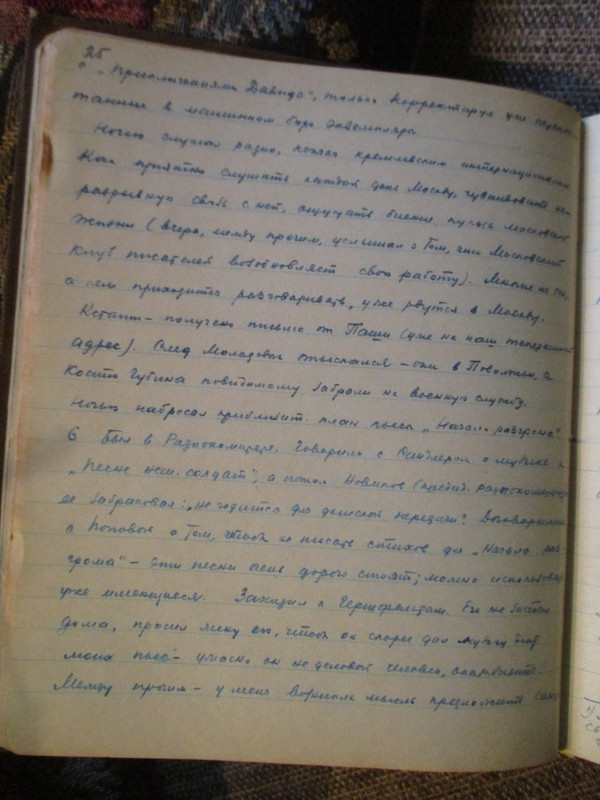 25
с „Приключениями Давида", только корректируя уже перепе-
танные в машинном бюро экземпляры.
Ночью слушал радио, кончая кремлевским интернационалом.
Как приятно слушать каждый день Москву, чувствовать не-
разрывную связь с ней, ощущать биение пульса московской
жизни (вчера, между прочим, услышал о том, что Московский
клуб писателей возобновляет свою работу). Многие из тех,
с кем приходится разговаривать, уже рвутся в Москву.
Кстати – получено письмо от Паши (уже на наш теперешний
адрес). След Молодовых отыскался – они в Поволжьи, а
Костю Губина повидимому забрали на военную службу.
Ночью набросал приблизит. план пьесы „Начало разгрома".
6 Был в Радиокомитете. Говорил с о музыке к
„Песне нем. солдат", а потом Новиков
ее забраковал: „не годится для детской передачи". Договорились
с Поповой о том, чтоб не писать стихов для „Начала раз-
грома" – эти песни очень дорого стоят; можно использовать
уже имеющиеся. Заходил к Гершфельдам. Его не застал
дома, просил жену его, чтоб он скорее дал музыку для
моих пьес – ужасно он не деловой человек,
Между прочим – у меня возникла мысль предложить